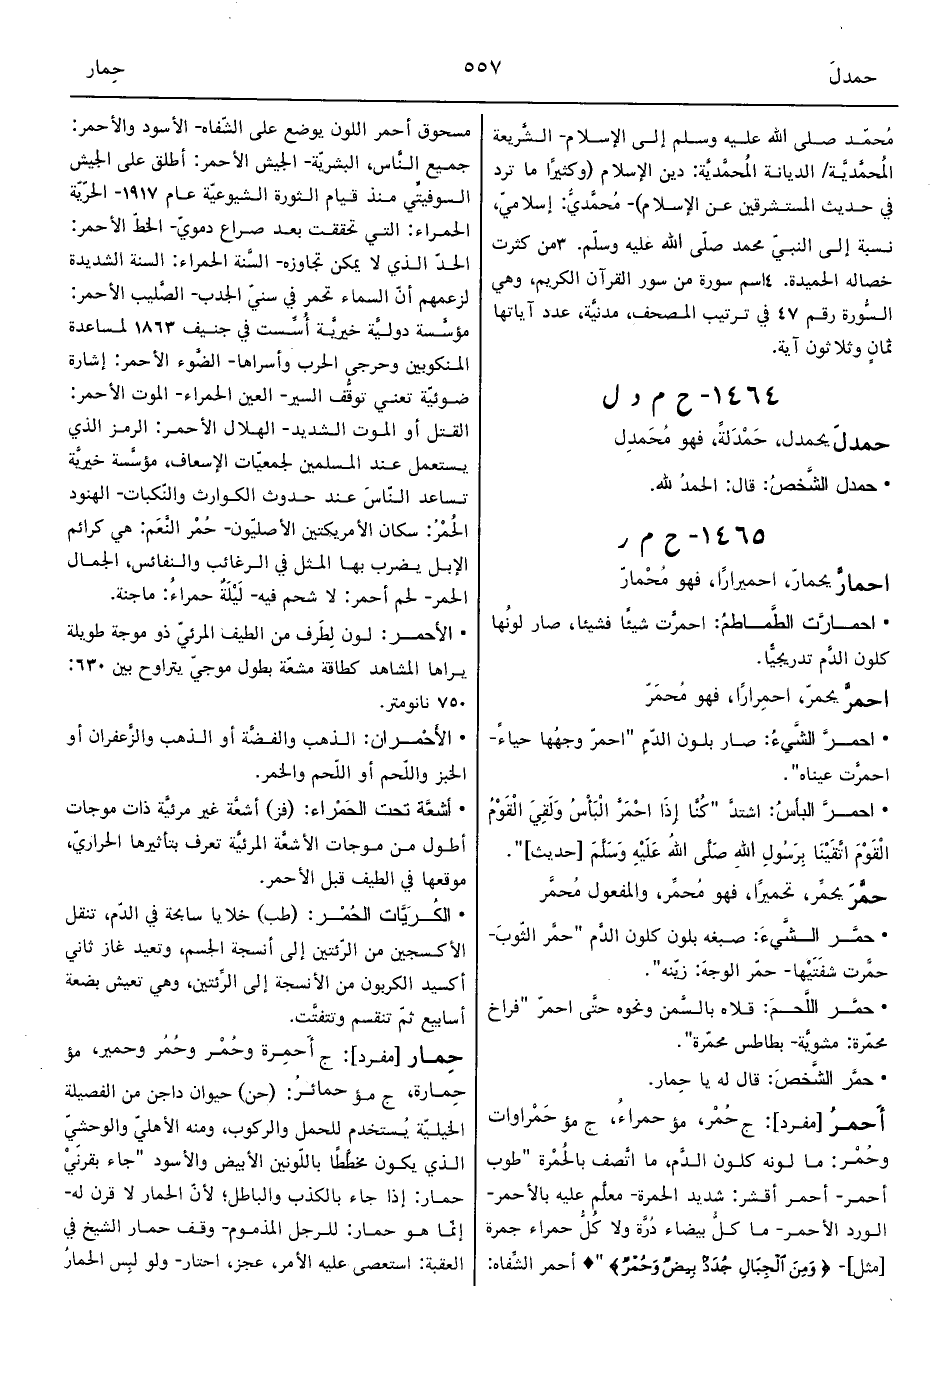 حمدلَ
٥٥٧
حِمار
مُحمّد صلى الله عليه وسلم إلى الإسلام- الشَّريعة
المُحمَّديَّة/ الديانة المُحمَّديَّة: دين الإسلام (وكثيرًا ما ترد
في حديث المستشرقين عن الإسلام)- مُحمَّديّ: إسلاميّ،
نسبة إلى النبيّ محمد صلّى الله عليه وسلّم. ٣من كثرت
خصاله الحميدة. ٤اسم سورة من سور القرآن الكريم، وهي
السُّورة رقم ٤٧ في ترتيب المصحف، مدنيَّة، عدد آياتها
ثمانٍ وثلاثون آية.
١٤٦٤- ح م د ل
حمدلَ يحمدل، حَمْدَلةً، فهو مُحَمدِل
• حمدل الشَّخصُ: قال: الحمدُ لله.
١٤٦٥- ح م ر
احمارَّ يحمارّ، احميرارًا، فهو مُحْمارّ
• احمـارَّت الطَّمـاطمُ: احمرَّت شيئًا فشيئا، صار لونُها
كلون الدَّم تدريجيًّا.
احمرَّ يحمرّ، احمِرارًا، فهو مُحمَرّ
• احمـرَّ الشَّيءُ: صـار بلـون الدّمِ "احمرّ وجهُها حياءً-
احمرَّت عيناه".
• احمـرَّ البأسُ: اشتدَّ "كُنَّا إِذَا احْمَرَّ الْبَأْسُ وَلَقِيَ الْقَوْمُ
الْقَوْمَ اتَّقَيْنَا بِرَسُولِ اللهِ صَلَّى اللهُ عَلَيْهِ وَسَلَّمَ [حديث]".
حمَّرَ يحمِّر، تحميرًا، فهو مُحمِّر، والمفعول مُحمَّر
• حمَّـر الـشَّيءَ: صـبغه بلون كلون الدَّم "حمَّر الثوبَ-
حمَّرت شفَتَيْها- حمّر الوجهَ: زيّنه".
• حمَّـر اللَّحـمَ: قـلاه بالسَّمن ونحوه حتَّى احمرّ "فراخ
محمّرة: مشويَّة- بطاطس محمّرة".
• حمَّر الشَّخصَ: قال له يا حِمار.
أحمـرُ [مفـرد]: ج حُمْر، مؤ حمراءُ، ج مؤ حَمْراوات
وحُمْـر: مـا لـونه كلـون الدَّم، ما اتَّصف بالحُمْرة "طوب
أحمر- أحمر أقشر: شديد الحمرة- معلّم عليه بالأحمر-
الورد الأحمر- ما كلُّ بيضاء دُرَّة ولا كُلُّ حمراء جمرة
[مثل]- ﴿ وَمِنَ الْجِبَالِ جُدَدٌ بِيضٌ وَحُمْرٌ ﴾ "♦ أحمر الشِّفاه:
مسحوق أحمر اللون يوضع على الشّفاه- الأسود والأحمر:
جميع النَّاس، البشريَّة- الجيش الأحمر: أطلق على الجيش
السوفيتّي منذ قيام الثورة الشيوعيّة عام ١٩١٧- الحريّة
الحمراء: التي تحققت بعد صراع دموي- الخطّ الأحمر:
الحدّ الذي لا يمكن تجاوزه- السَّنة الحمراء: السنة الشديدة
لزعمهم أنّ السماء تحمر في سنيّ الجدب- الصَّليب الأحمر:
مؤسَّسة دوليَّة خيريَّة أُسِّست في جنيف ١٨٦٣ لمساعدة
المنكوبين وجرحى الحرب وأسراها- الضَّوء الأحمر: إشارة
ضوئيّة تعني توقُّف السير- العين الحمراء- الموت الأحمر:
القتل أو الموت الشديد- الهلال الأحمر: الرمز الذي
يستعمل عند المسلمين لجمعيات الإسعاف، مؤسَّسة خيريَّة
تساعد النَّاسَ عند حدوث الكوارث والنّكبات- الهنود
الحُمْرُ: سكان الأمريكتين الأصليّون- حُمْر النَّعَم: هي كرائم
الإبل يضرب بها المثل في الرغائب والنفائس، الجمال
الحمر- لحم أحمر: لا شحم فيه- لَيْلَةٌ حمراءُ: ماجنة.
• الأحمـر: لـون لِطَرف من الطيف المرئيّ ذو موجة طويلة
يراها المشاهد كطاقة مشعّة بطول موجيّ يتراوح بين ٦٣٠:
٧٥٠ نانومتر.
• الأحْمـران: الذهب والفضَّة أو الذهب والزَّعفران أو
الخبز واللَّحم أو اللّحم والخمر.
• أشعَّة تحت الحَمْراء: (فز) أشعَّة غير مرئيَّة ذات موجات
أطول من موجات الأشعَّة المرئيَّة تعرف بتأثيرها الحراريّ،
موقعها في الطيف قبل الأحمر.
• الكُـرَيَّات الحُمْـر: (طب) خلايا سابحة في الدّم، تنقل
الأكسجين من الرّئتين إلى أنسجة الجسم، وتعيد غاز ثاني
أكسيد الكربون من الأنسجة إلى الرِّئتين، وهي تعيش بضعة
أسابيع ثمّ تنقسم وتتفتَّت.
حِمـار [مفـرد]: ج أحمِـرة وحُمْـر وحُمُر وحمير، مؤ
حِمـارة، ج مـؤ حمائـرُ: (حن) حيوان داجن من الفصيلة
الخيليّة يُستخدم للحمل والركوب، ومنه الأهليّ والوحشيّ
الذي يكون مخطَّطًا باللّونين الأبيض والأسود "جاء بقرنَيْ
حمار: إذا جاء بالكذب والباطل؛ لأنّ الحمار لا قرن له-
إنَّما هو حمار: للرجل المذموم- وقف حمار الشيخ في
العقبة: استعصى عليه الأمر، عجز، احتار- ولو لبِس الحمارُ